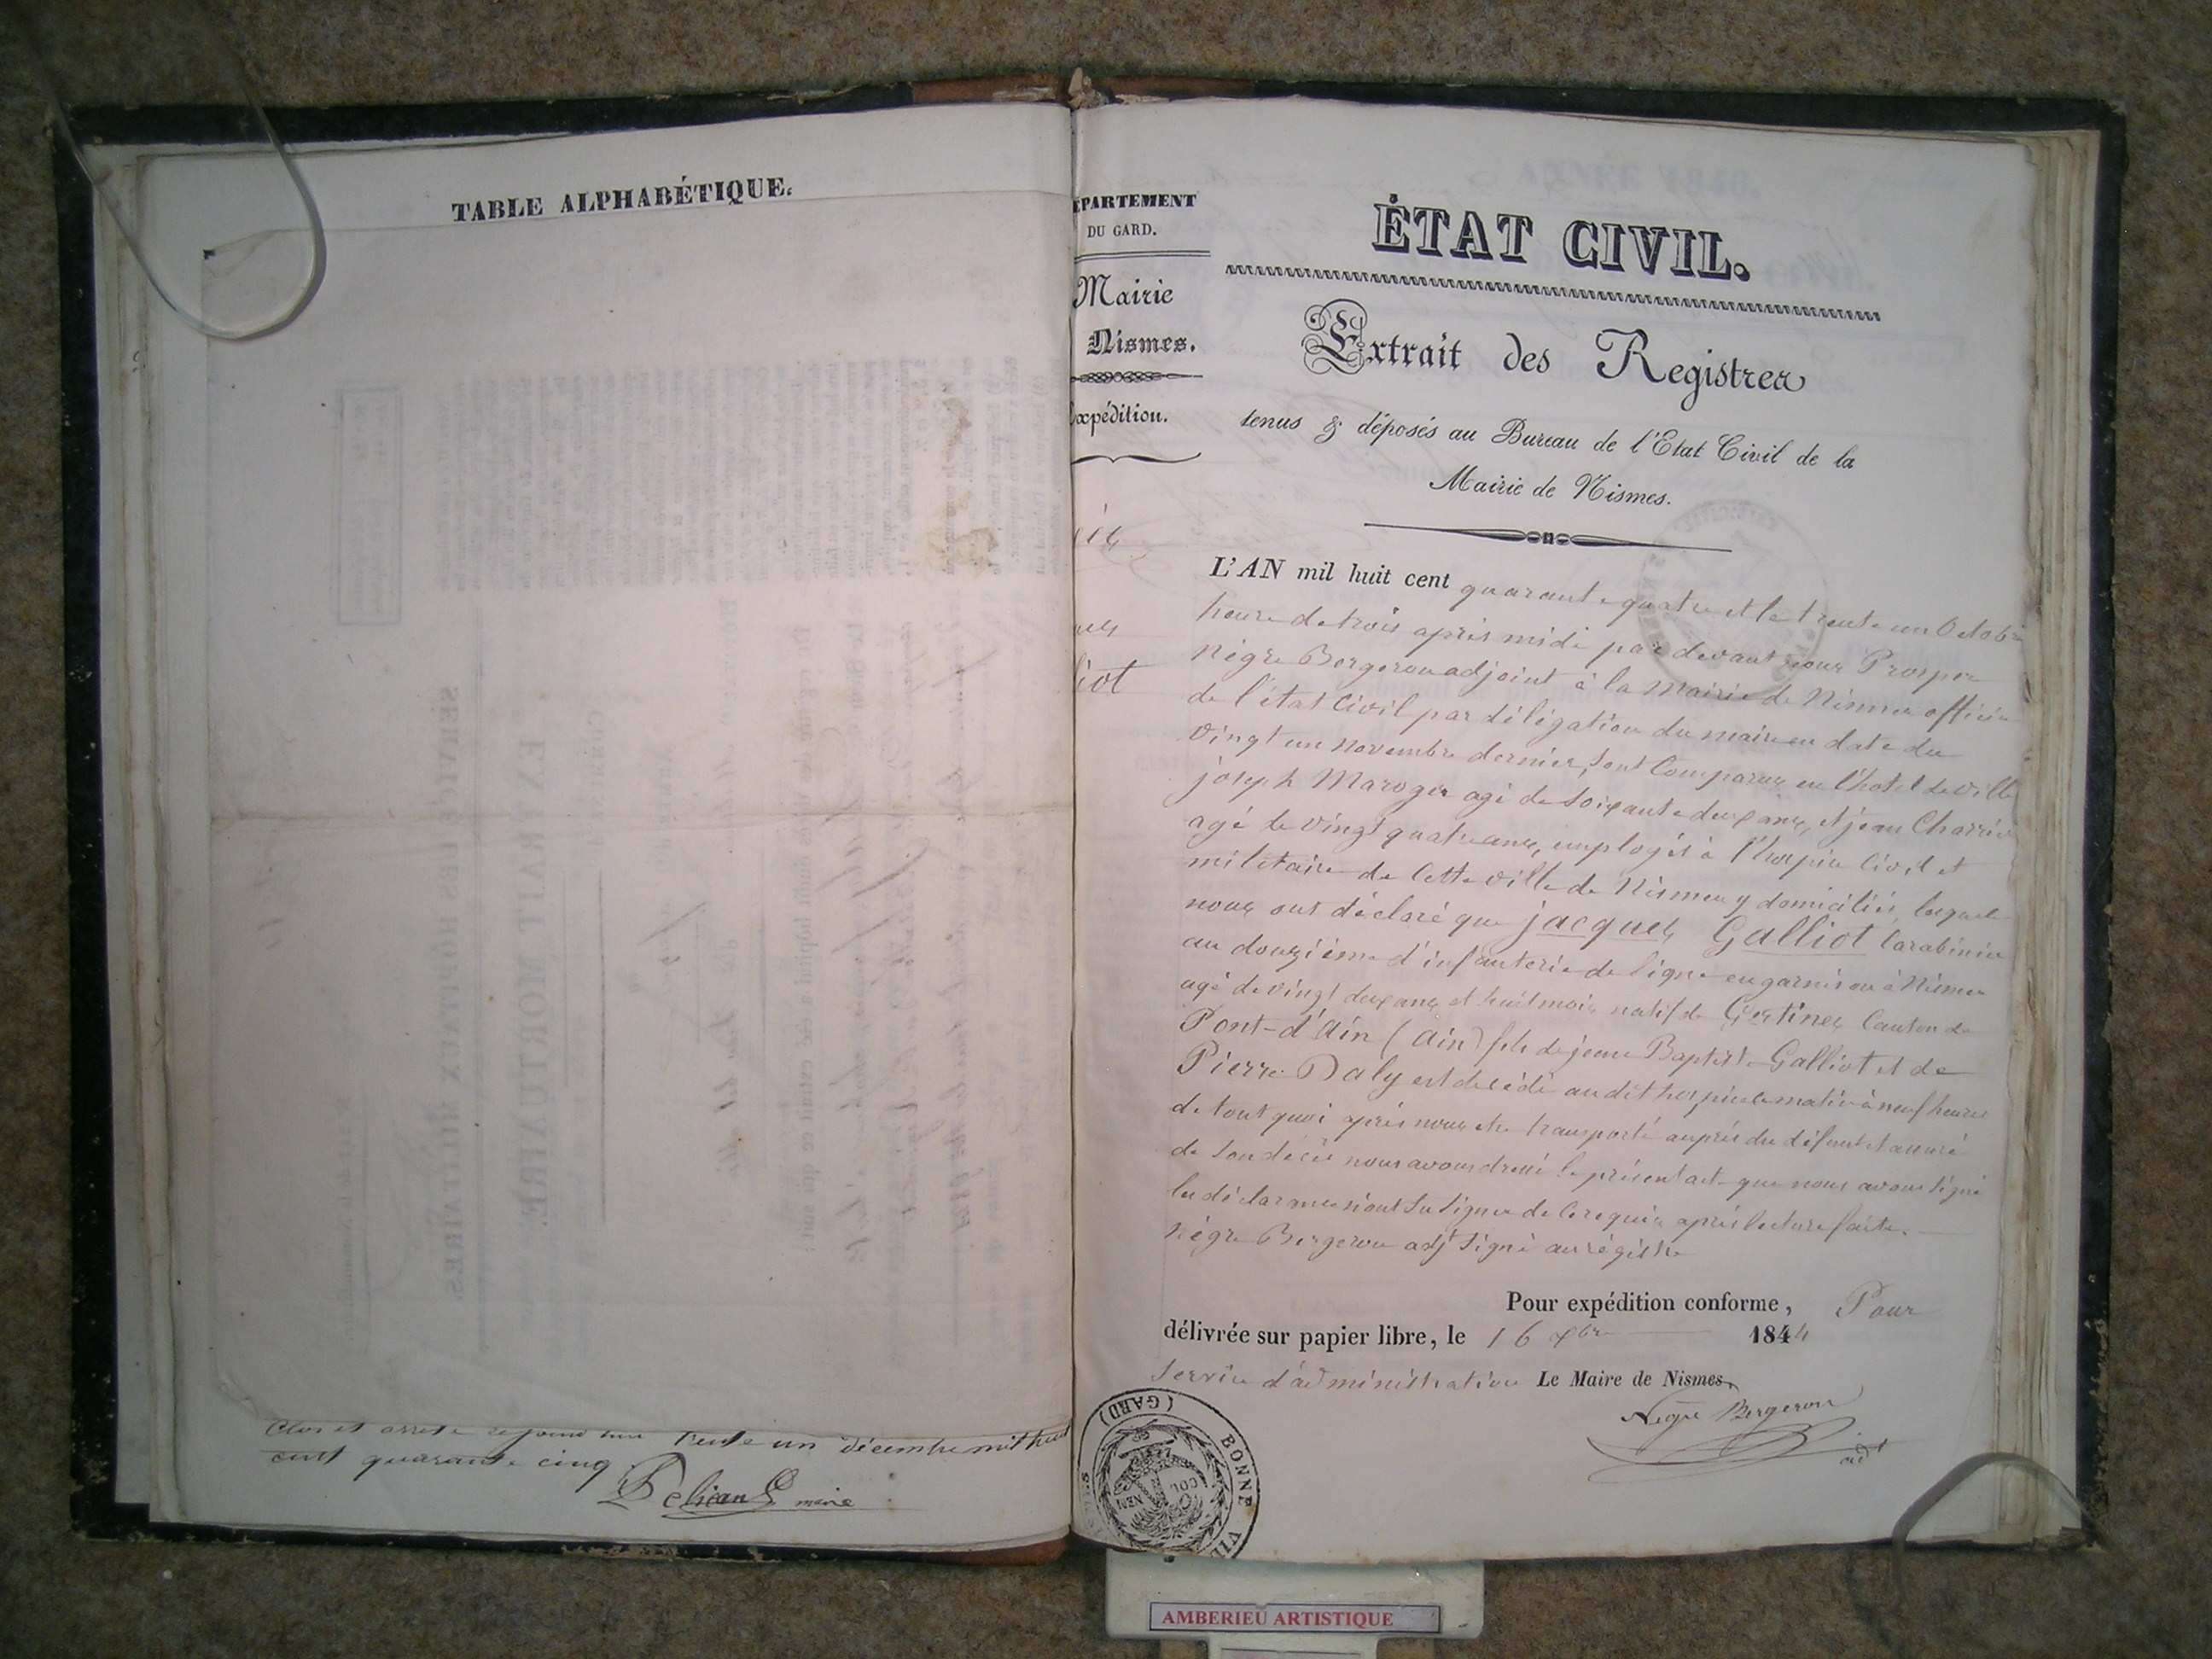 TABLE ALPHABÉTIQUE.
Clos et arrêté ce jourd'hui trente un décembre mil huit
cent quarante cinq
maire
ÉPARTEMENT
DU GARD.
Mairie
Nismes.
Expédition.
iot
ÉTAT CIVIL.
Extrait des Registres
tenus & déposés au Bureau de l'Etat Civil de la
Mairie de Nismes.
L'AN mil huit cent quarante quatre et le trente un Octobre
heure de trois après midi par devant nous Prosper
Nègre Bergeron adjoint à la Mairie de Nismes officier
de l'état Civil par délégation du maire en date du
vingt un novembre dernier, sont Comparus en l'hotel de ville
joseph Maroger agé de soixante deux ans, et jean Charrié
agé de vingt quatre ans, employés à l'hospice Civil et
militaire de Cette ville de Nismes y domiciliés, lesquels
nous ont déclaré que jacques Galliot Carabinier
au douzième d'infanterie de ligne en garnison à Nismes
agé de vingt deux ans et huit mois natif de Certines Canton de
Pont-d'Ain (Ain) fils de jean Baptiste Galliot et de
Pierre Daly est décédé au dit hospice ce matin à neuf heures
de tout quoi après nous etre transporté auprès du défunt et assuré
de son décès nous avons dressé le présent acte que nous avons signé
les déclarans n'ont su signer de ce requis après lecture faite.
Nègre Bergeron adjt signé au régistre
Pour expédition conforme, Pour
délivrée sur papier libre, le 16 xbre 1844
service d'administration Le Maire de Nismes,
Nègre Bergeron
adjt
(GARD)
BONNE VIL
COL NEM
AMBERIEU ARTISTIQUE